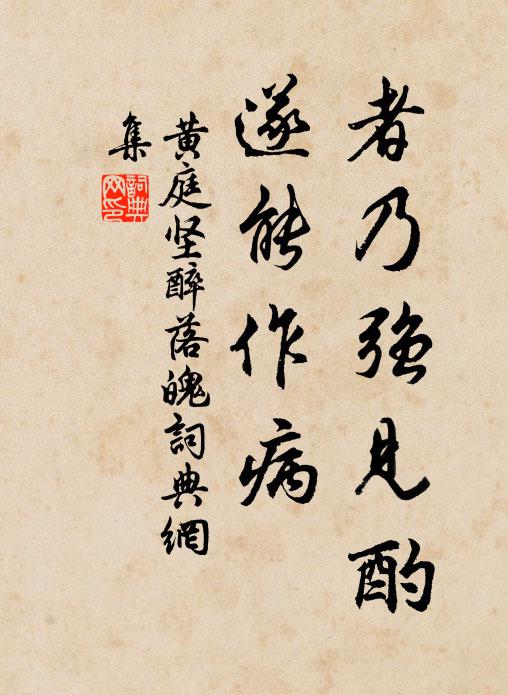 者乃強見酌
遂能作病
黄庭坚醉落魄詞典網
集
詞典
网印